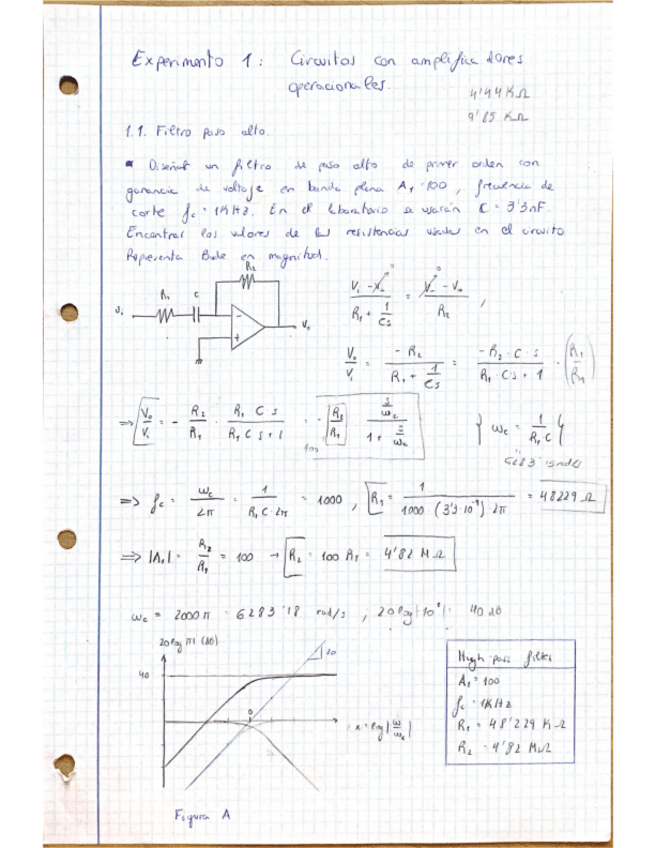 Experimento 1: Circuitos con amplificadores
operacionales.
4'44 KΩ
9'85 KΩ
1.1. Filtro paso alto.
Diseñar un filtro de paso alto de primer orden con
ganancia de voltaje en banda plana A₁=100, frecuencia de
corte fc = 1KHz. En el laboratorio se usarán C = 3'3nF.
Encontrar los valores de las resistencias usadas en el circuito
Representa Bode en magnitud.
R₂
R₁ C
Vi - + Vo
(Vi - Vn) / (R₁ + 1/Cs) = (Vn - Vo) / R₂ ,
0 0
Vo/Vi = -R₂ / (R₁ + 1/Cs) = (-R₂·C·s) / (R₁·C·s + 1) · (R₁/R₁)
⇒ Vo/Vi = - R₂/R₁ · R₁ C s / (R₁ C s + 1) = - R₂/R₁ · (s/ωc) / (1 + s/ωc) { ωc = 1/(R₁C) }
100
⇒ fc = ωc/2π = 1/(R₁ C 2π) = 1000 , R₁ = 1 / (1000 · (3'3·10⁻⁹) · 2π) = 48229 Ω
⇒ |A₁| = R₂/R₁ = 100 → R₂ = 100 R₁ = 4'82 MΩ
ωc = 2000π = 6283'18 rad/s , 20log|10²| = 40 dB
20log |T| (dB)
40
20
0
x = log|ω/ωc|
High-pass filter
A₁ = 100
fc = 1KHz
R₁ = 48'229 KΩ
R₂ = 4'82 MΩ
Figura A